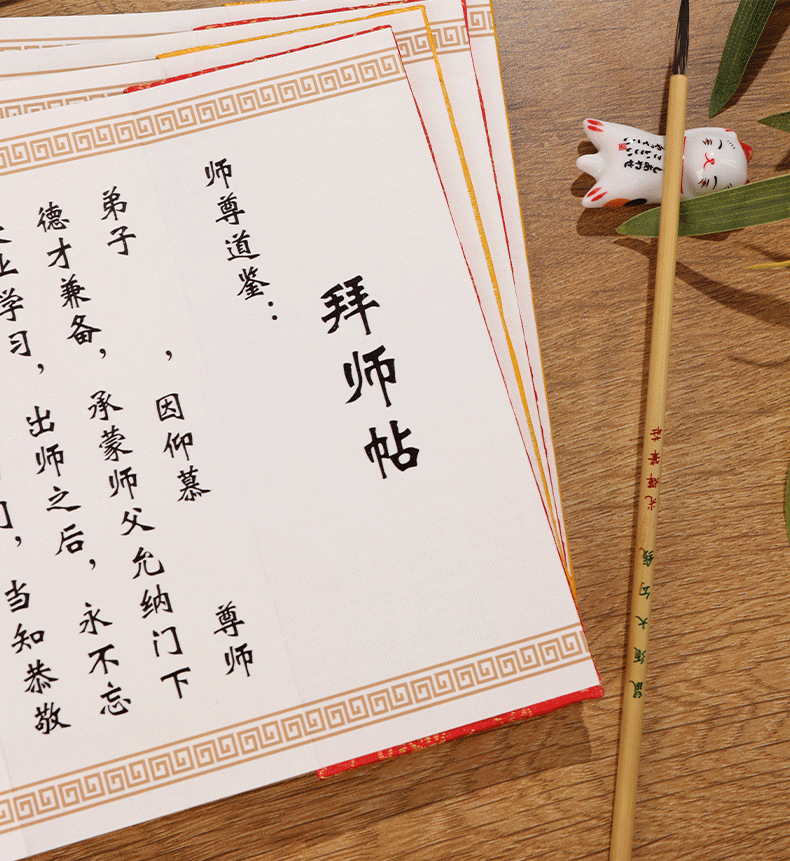 拜师帖
师尊道鉴：
弟子，因仰慕 尊师
德才兼备，承蒙师父允纳门下
业学习，出师之后，永不忘
，当知恭敬
鼠须大勾线 光辉笔庄